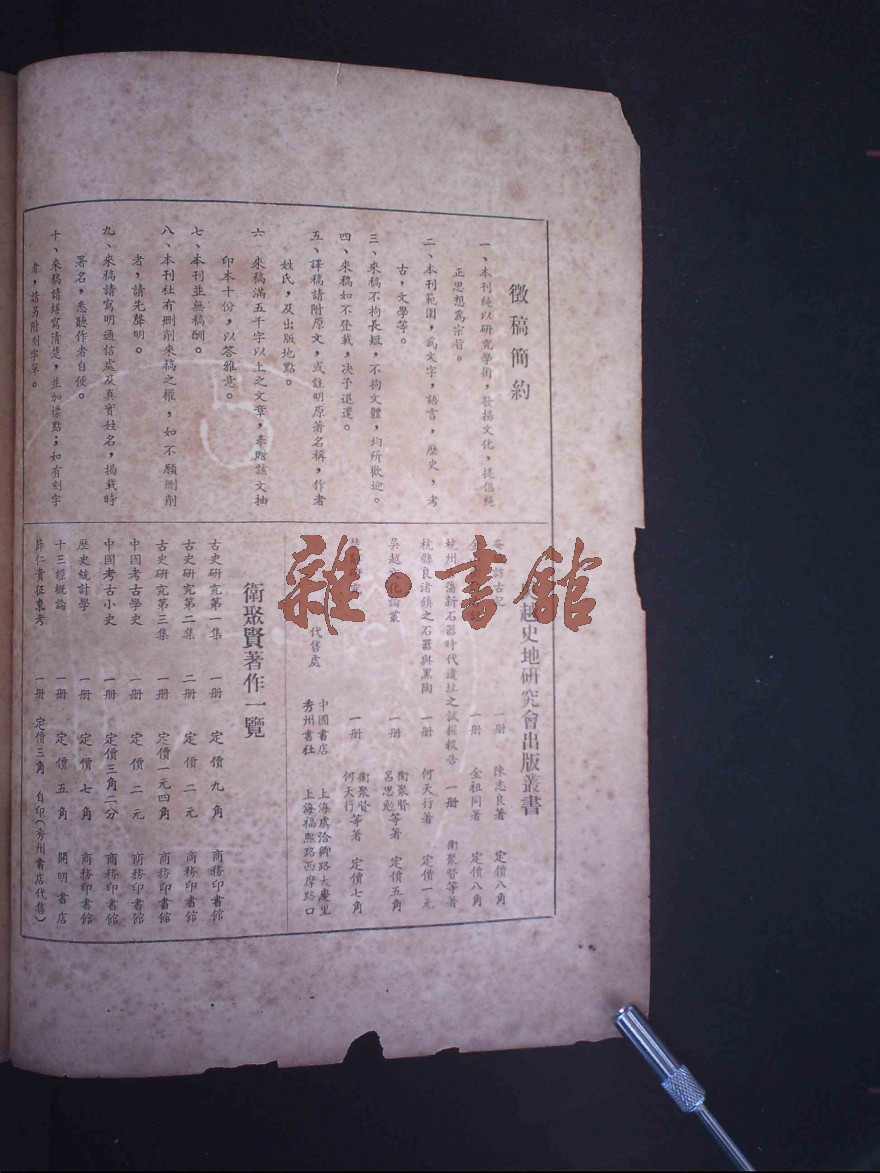 徵稿簡約
一、本刊純以研究學術，發揚文化，提倡純
正思想為宗旨。
二、本刊範圍，為文字，語言，歷史，考
古，文學等。
三、來稿不拘長短，不拘文體，均所歡迎。
四、來稿如不登載，決予退還。
五、譯稿請附原文，或註明原著名稱，作者
姓氏，及出版地點。
六　來稿滿五千字以上之文章，奉贈該文抽
印本十份，以答雅意。
七、本刊並無稿酬。
八、本刊社有刪削來稿之權，如不願刪削
者，請先聲明。
九、來稿請寫明通信處及真實姓名，揭載時
署名，悉聽作者自便。
十、來稿請繕寫清楚，並加標點；如有刻字
者，請另附刻字單。
越史地研究會出版叢書
訪古記　一册　陳志良著　定價八角
金　一册　金祖同著　定價八角
杭州古蕩新石器時代遺址之試探報告　一册　衛聚賢等著
杭縣良渚鎮之石器與黑陶　一册　何天行著　定價一元
吳越文化論叢　一册　衛聚賢　呂思勉等著　定價五角
一册　衛聚賢　何天行等著　定價七角
代售處　中國書店　上海虞洽卿路大慶里
秀州書社　上海福煦路西摩路口
衛聚賢著作一覽
古史研究第一集　一册　定價九角　商務印書館
古史研究第二集　二册　定價二元　商務印書館
古史研究第三集　一册　定價一元四角　商務印書館
中國考古學史　一册　定價二元　商務印書館
中國考古小史　一册　定價三角二分　商務印書館
歷史統計學　一册　定價七角　商務印書館
十三經概論　一册　定價五角　開明書店
薛仁貴征東考　一册　定價三角　自印（秀州書店代售）
雜·書館